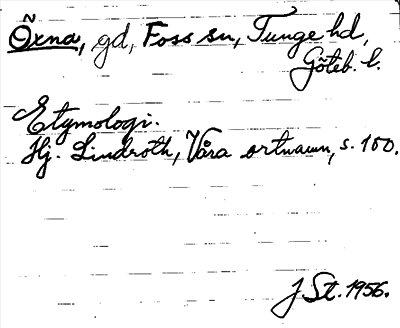 Öxna, gd, Foss sn, Tunge hd,
Göteb. l.
Etymologi.
Hj. Lindroth, Våra ortnamn, s. 100.
J St. 1956.